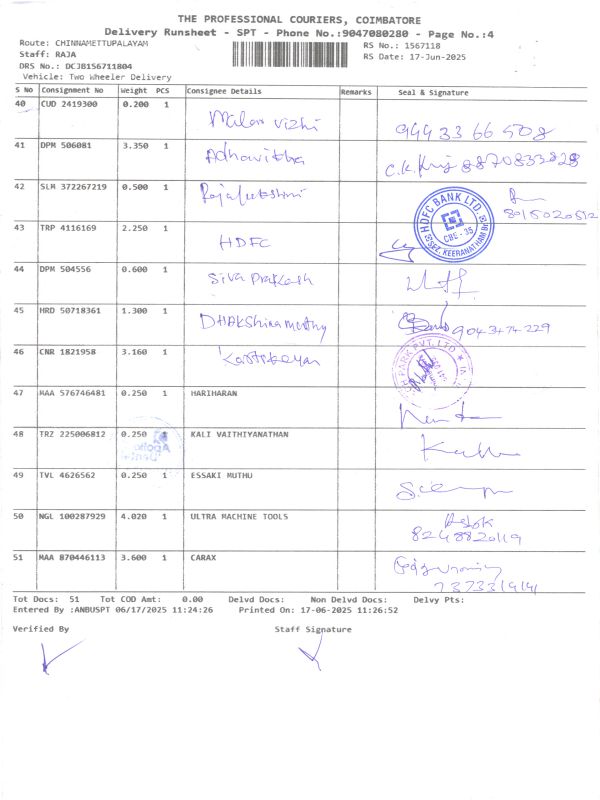 THE PROFESSIONAL COURIERS, COIMBATORE
Delivery Runsheet - SPT - Phone No.:9047080280 - Page No.:4
Route: CHINNAMETTUPALAYAM
RS No.: 1567118
Staff: RAJA
RS Date: 17-Jun-2025
DRS No.: DCJB156711804
Vehicle: Two Wheeler Delivery
S No Consignment No Weight PCS Consignee Details Remarks Seal & Signature
40 CUD 2419300 0.200 1 Malar Vizhi 99433 66508
41 DPM 506081 3.350 1 8870833828
42 SLM 372267219 0.500 1 Rajalakshmi 8015020512
HDFC BANK LTD. CBE - 35
43 TRP 4116169 2.250 1 HDFC
44 DPM 504556 0.600 1 Siva Prakash
45 HRD 50718361 1.300 1 DHAKshinamoorthy
46 CNR 1821958 3.160 1 Karthikeyan
PARK PVT. LTD
47 MAA 576746481 0.250 1 HARIHARAN
48 TRZ 225006812 0.250 1 KALI VAITHIYANATHAN
49 TVL 4626562 0.250 1 ESSAKI MUTHU
50 NGL 100287929 4.020 1 ULTRA MACHINE TOOLS Ashok
8248820119
51 MAA 870446113 3.600 1 CARAX
Tot Docs: 51 Tot COD Amt: 0.00 Delvd Docs: Non Delvd Docs: Delvy Pts:
Entered By :ANBUSPT 06/17/2025 11:24:26 Printed On: 17-06-2025 11:26:52
Verified By Staff Signature